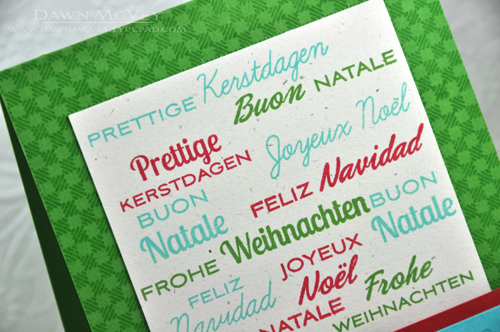 DAWN MCVEY
WWW.DAWNMCVEY.TYPEPAD.COM
PRETTIGE Kerstdagen
Buon NATALE
Prettige Joyeux Noël
KERSTDAGEN
FELIZ Navidad
BUON
Natale Weihnachten BUON
FROHE Natale
JOYEUX
FELIZ Noël Frohe
Navidad
NATALE WEIHNACHTEN